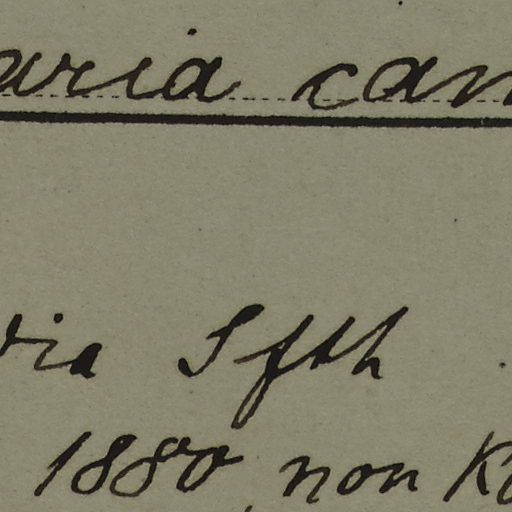 aria can
via Sfth
1880, non Ko